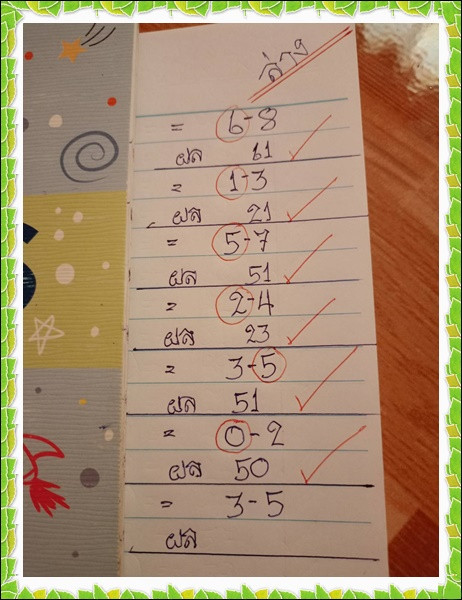 ล่าง
= 6-8
ผล 61
= 1-3
ผล 21
= 5-7
ผล 51
= 2-4
ผล 23
= 3-5
ผล 51
= 0-2
ผล 50
= 3-5
ผล